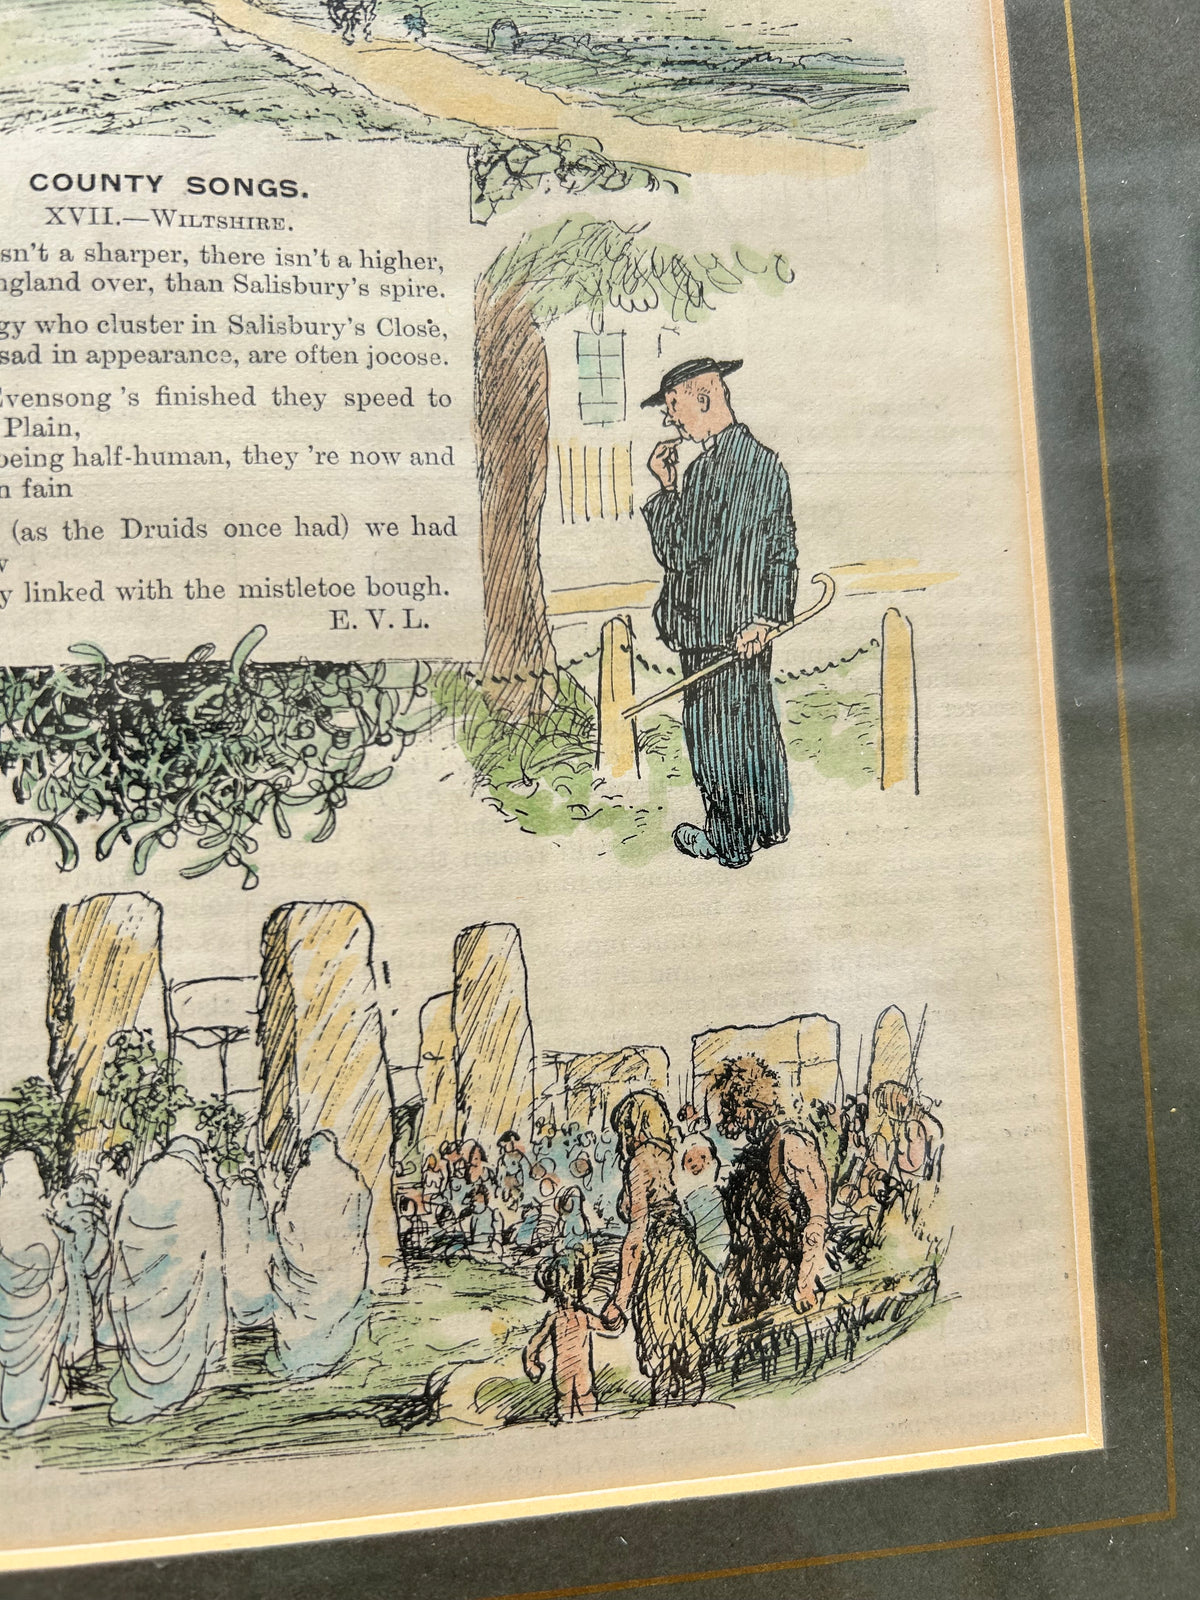 COUNTY SONGS.
XVII.—WILTSHIRE.
sn't a sharper, there isn't a higher,
ngland over, than Salisbury's spire.
gy who cluster in Salisbury's Close,
sad in appearance, are often jocose.
Evensong 's finished they speed to
Plain,
being half-human, they 're now and
n fain
(as the Druids once had) we had
y linked with the mistletoe bough.
E. V. L.